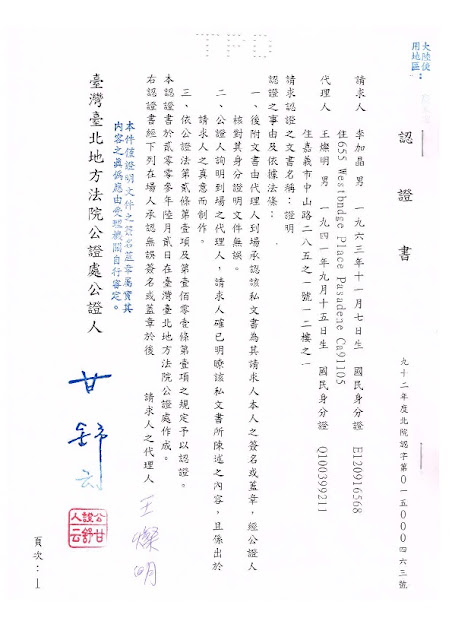 TPD
大陸使
用地區：
認證書
九十二年度北院認字第0一五000四六三號
請求人　李加晶　男　一九六三年十一月七日生　國民身分證　E120916568
住655 Westbndge Place Pasadene Ca91105
代理人　王燦明　男　一九四一年九月十五日生　國民身分證　Q100399211
住嘉義市中山路二八五之一號一二樓之一
請求認證之文書名稱：證明
認證之事由及依據法條：
一、後附文書由代理人到場承認該私文書為其請求人本人之簽名或蓋章，經公證人
核對其身分證明文件無誤。
二、公證人詢明到場之代理人，請求人確已明瞭該私文書所陳述之內容，且係出於
請求人之真意而制作。
三、依公證法第貳條第壹項及第壹佰零壹條第壹項之規定予以認證。
本認證書於貳零零參年陸月貳日在臺灣臺北地方法院公證處作成。
右認證書經下列在場人承認無誤簽名或蓋章於後
請求人之代理人　王燦明
本件僅證明文件之簽名蓋章屬實其
內容之真偽應由受理機關自行審定。
臺灣臺北地方法院公證處公證人
甘舒
公證人甘舒云
頁次：1